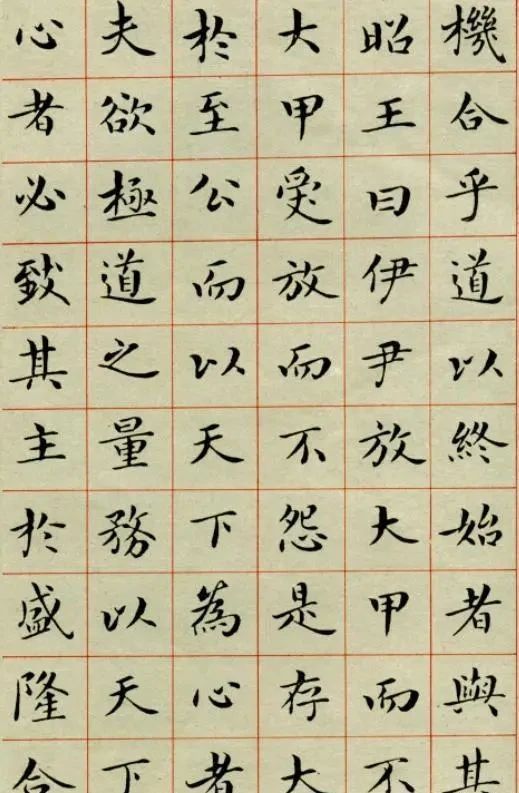 機合乎道以終始者與其
昭王曰伊尹放大甲而不
大甲受放而不怨是存大
於至公而以天下為心者
夫欲極道之量務以天下
心者必致其主於盛隆合